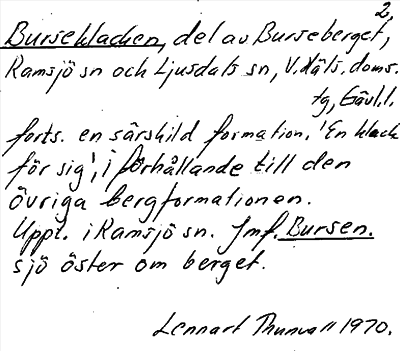 2,
Burseklacken, del av Burseberget,
Ramsjö sn och Ljusdals sn, V. Häls. doms.
tg, Gävl.l.
forts. en särskild formation, 'En klack
för sig', i förhållande till den
övriga bergformationen.
Uppt. i Ramsjö sn. Jmf. Bursen.
sjö öster om berget.
Lennart Thunwall 1970.